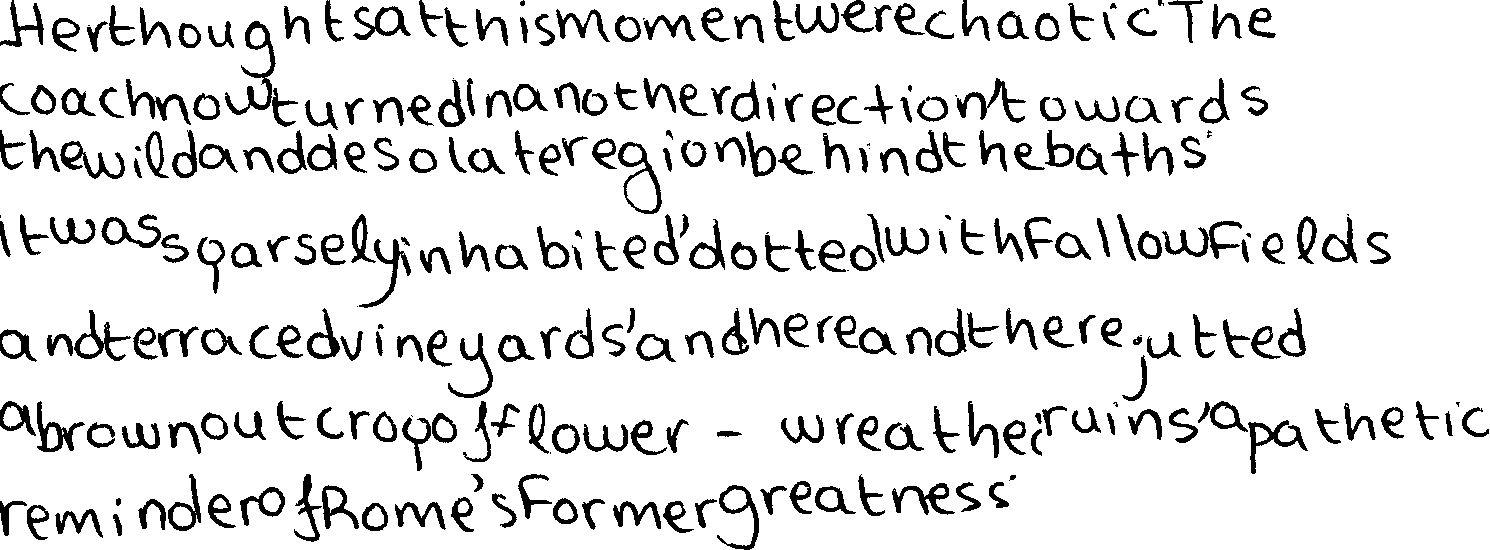 Her thoughts at this moment were chaotic. The
coach now turned in another direction, towards
the wild and desolate region behind the baths.
it was sparsely inhabited, dotted with fallow fields
and terraced vineyards, and here and there jutted
a brown outcrop of flower - wreathed ruins, a pathetic
reminder of Rome's former greatness.